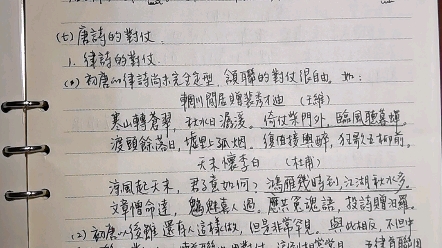 (七) 唐詩的對仗
1. 律詩的對仗
初唐以律詩尚未完全定型 頷聯的對仗很自由, 如:
輞川閒居贈裴秀才迪 (王維)
寒山轉蒼翠, 秋水日潺湲。倚仗柴門外, 臨風聽暮蟬。
渡頭餘落日, 墟里上孤烟。復值接輿醉, 狂歌五柳前。
天末懷李白 (杜甫)
涼風起天末, 君子意如何? 鴻雁幾時到, 江湖秋水多。
文章憎命達, 魑魅喜人過。應共冤魂語, 投詩贈汨羅。
(2) 初唐以後雖還有人這樣做, 但是非常罕見。與此相反, 不但中